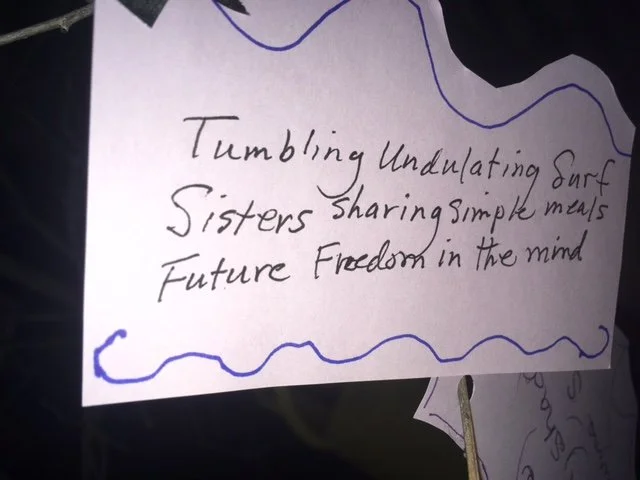 Tumbling Undulating Surf
Sisters sharing simple meals
Future Freedom in the mind